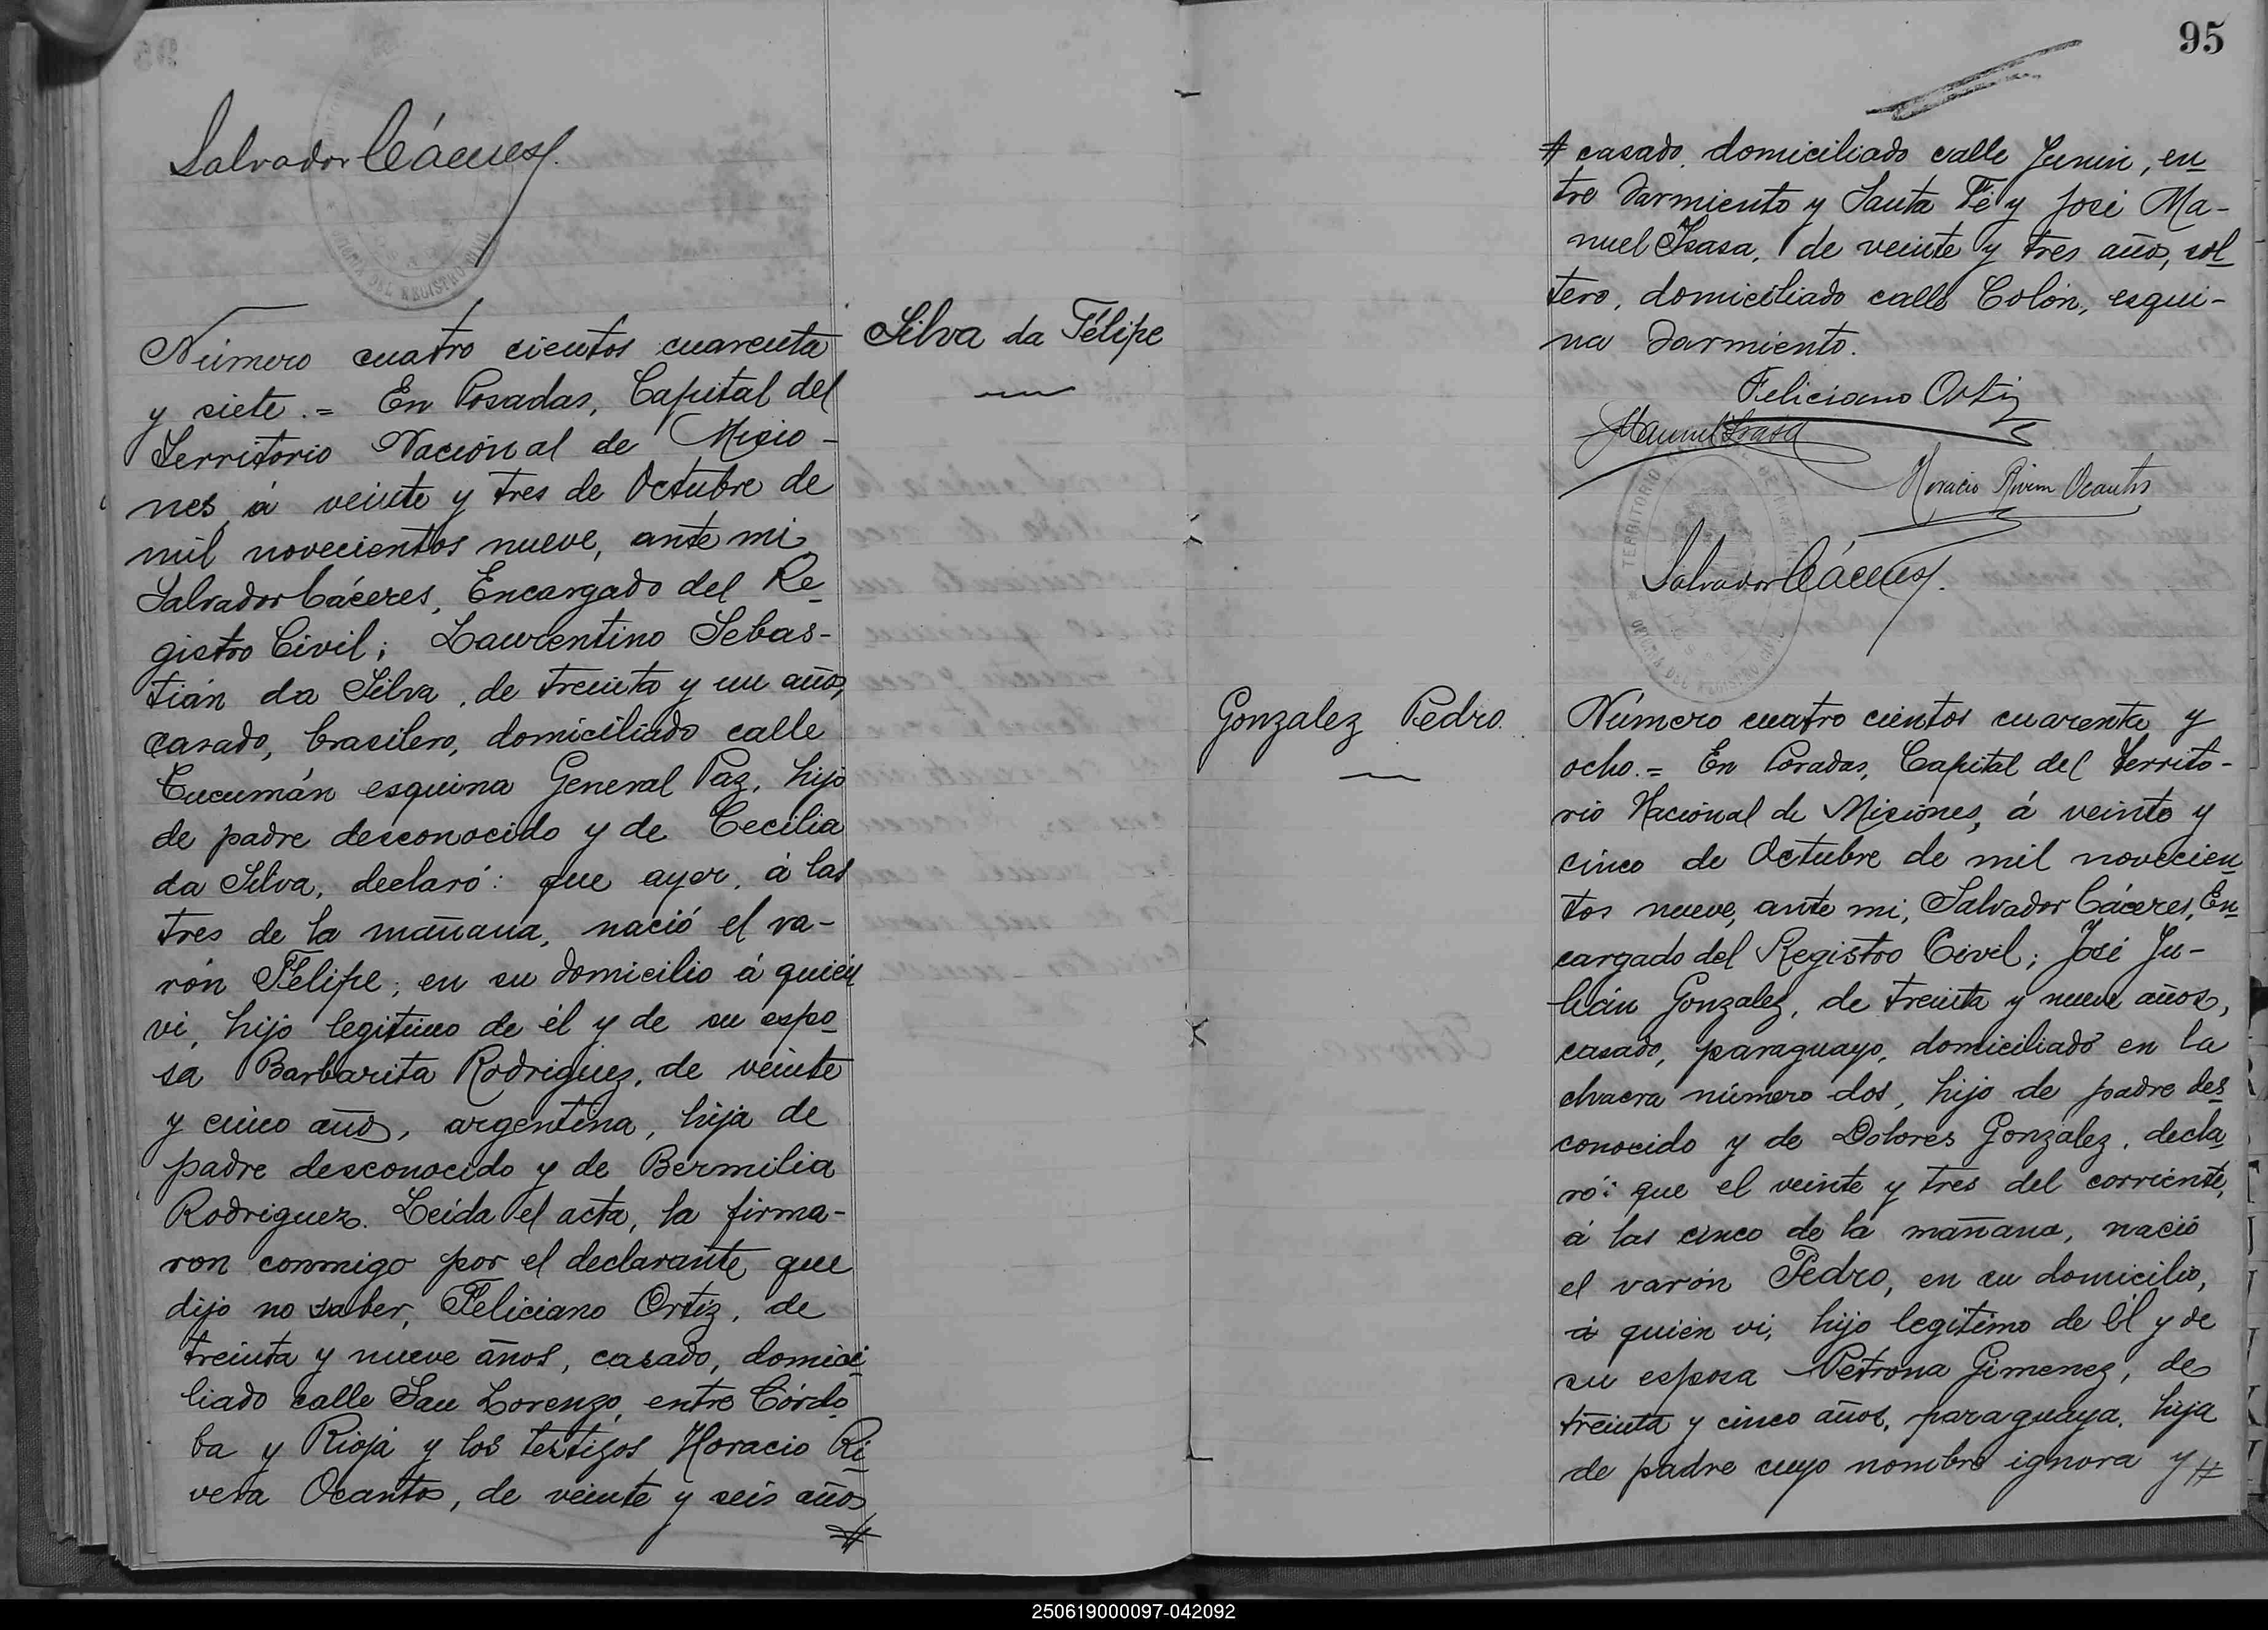 Salvador Cáceres
Silva da Félipe
Número cuatro cientos cuarenta
y siete.= En Posadas, Capital del
Territorio Nacional de Misio-
nes, á veinte y tres de Octubre de
mil novecientos nueve, ante mi
Salvador Cáceres, Encargado del Re-
gistro Civil; Laurentino Sebas-
tián da Silva, de treinta y un años,
casado, brasilero, domiciliado calle
Tucumán esquina General Paz, hijo
de padre desconocido y de Cecilia
da Silva, declaró: que ayer, á las
tres de la mañana, nació el va-
rón Félipe, en su domicilio á quien
vi, hijo legitimo de él y de su espo-
sa Barbarita Rodriguez, de veinte
y cinco años, argentina, hija de
padre desconocido y de Bermilia
Rodriguez. Leida el acta, la firma-
ron conmigo por el declarante que
dijo no saber, Feliciano Ortiz, de
treinta y nueve años, casado, domici-
liado calle San Lorenzo, entre Córdo-
ba y Rioja y los testigos Horacio Ri-
vera Ocantos, de veinte y seis años
#
95
# casado, domiciliado calle Junin, en-
tre Sarmiento y Santa Fé y José Ma-
nuel Isasa, de veinte y tres años, sol-
tero, domiciliado calle Colón, esqui-
na Sarmiento.
Feliciano Ortiz
Manuel Isasa
Horacio Rivera Ocantos
Salvador Cáceres
Gonzalez Pedro.
Número cuatro cientos cuarenta y
ocho.= En Posadas, Capital del Territo-
rio Nacional de Misiones, á veinte y
cinco de Octubre de mil novecien-
tos nueve, ante mi, Salvador Cáceres, En-
cargado del Registro Civil; José Ju-
lián Gonzalez, de treinta y nueve años,
casado, paraguayo, domiciliado en la
chacra número dos, hijo de padre des-
conocido y de Dolores Gonzalez, decla-
ró: que el veinte y tres del corriente,
á las cinco de la mañana, nació
el varón Pedro, en su domicilio,
á quien vi, hijo legitimo de él y de
su esposa Petrona Gimenez, de
treinta y cinco años, paraguaya, hija
de padre cuyo nombre ignora y #
250619000097-042092